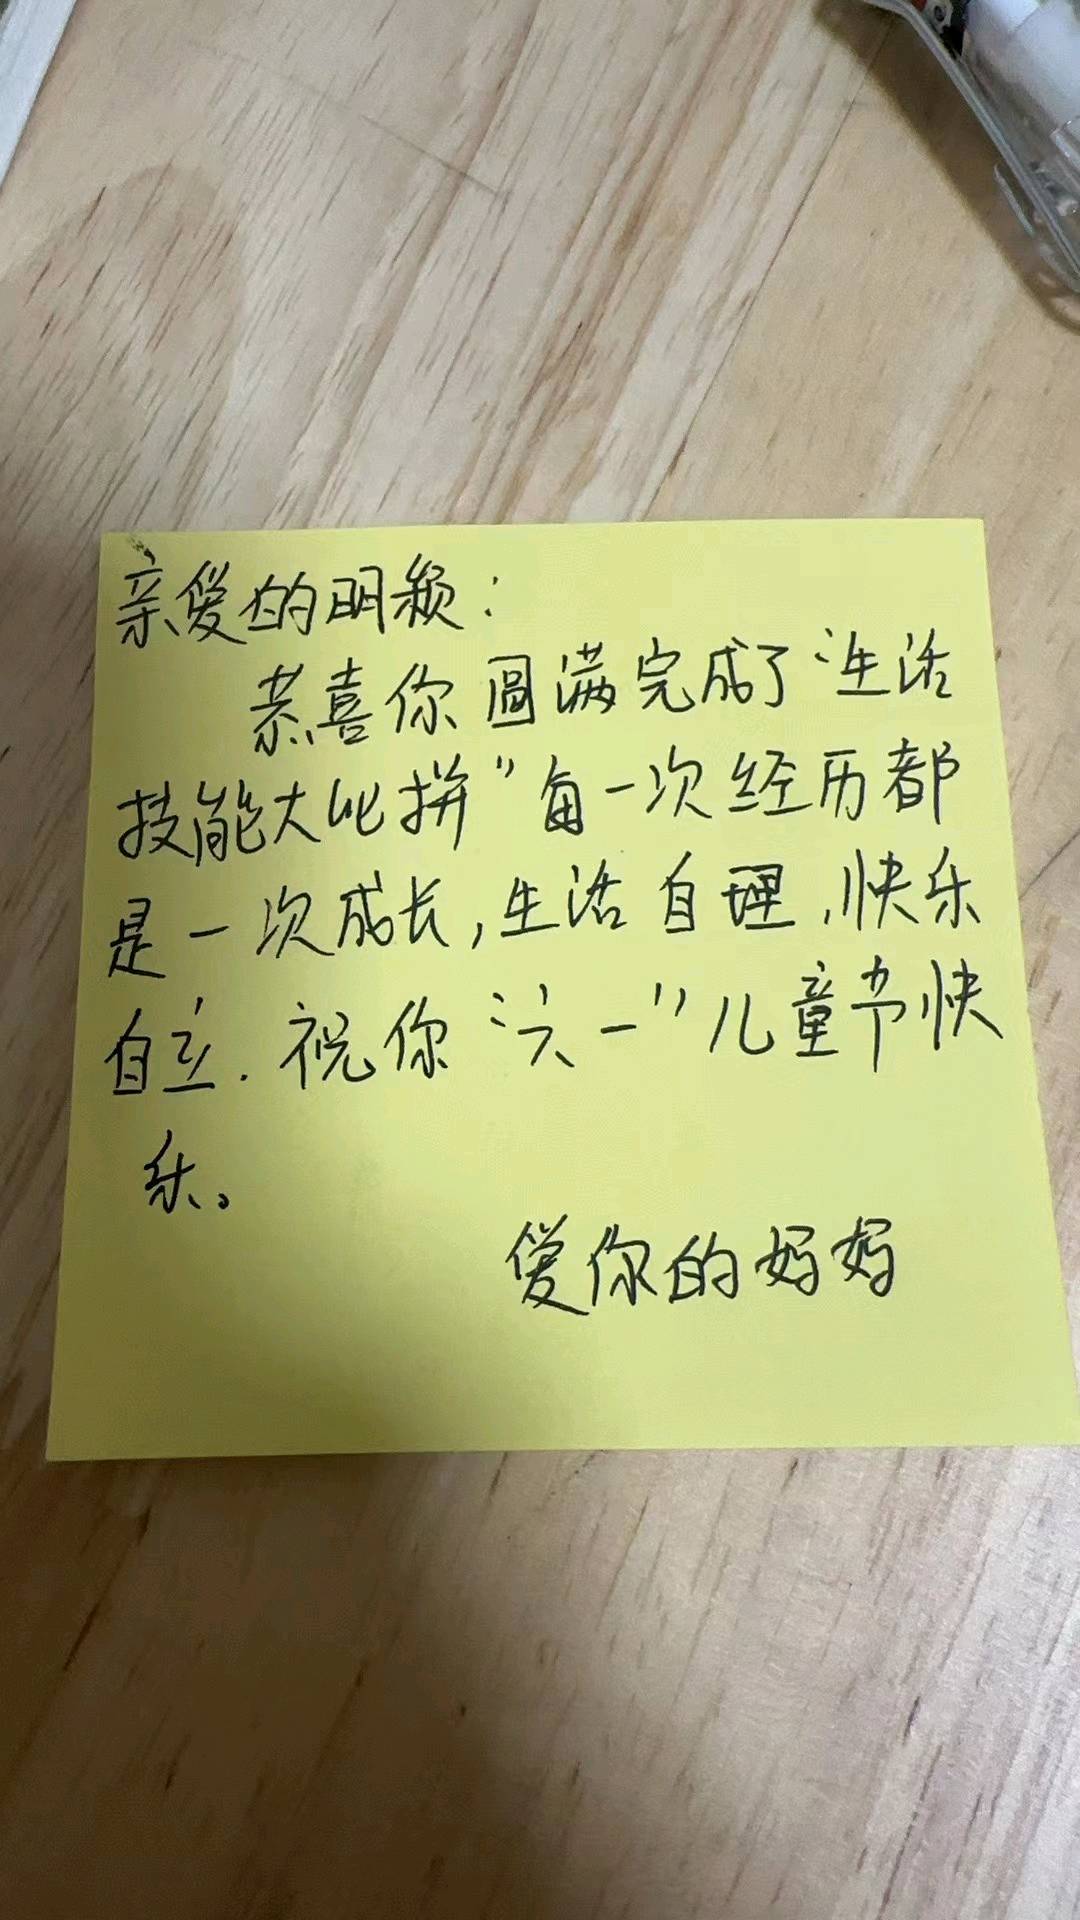 亲爱的明颖：
恭喜你圆满完成了“生活
技能大比拼”每一次经历都
是一次成长,生活自理,快乐
自立.祝你“六一”儿童节快
乐。
爱你的妈妈